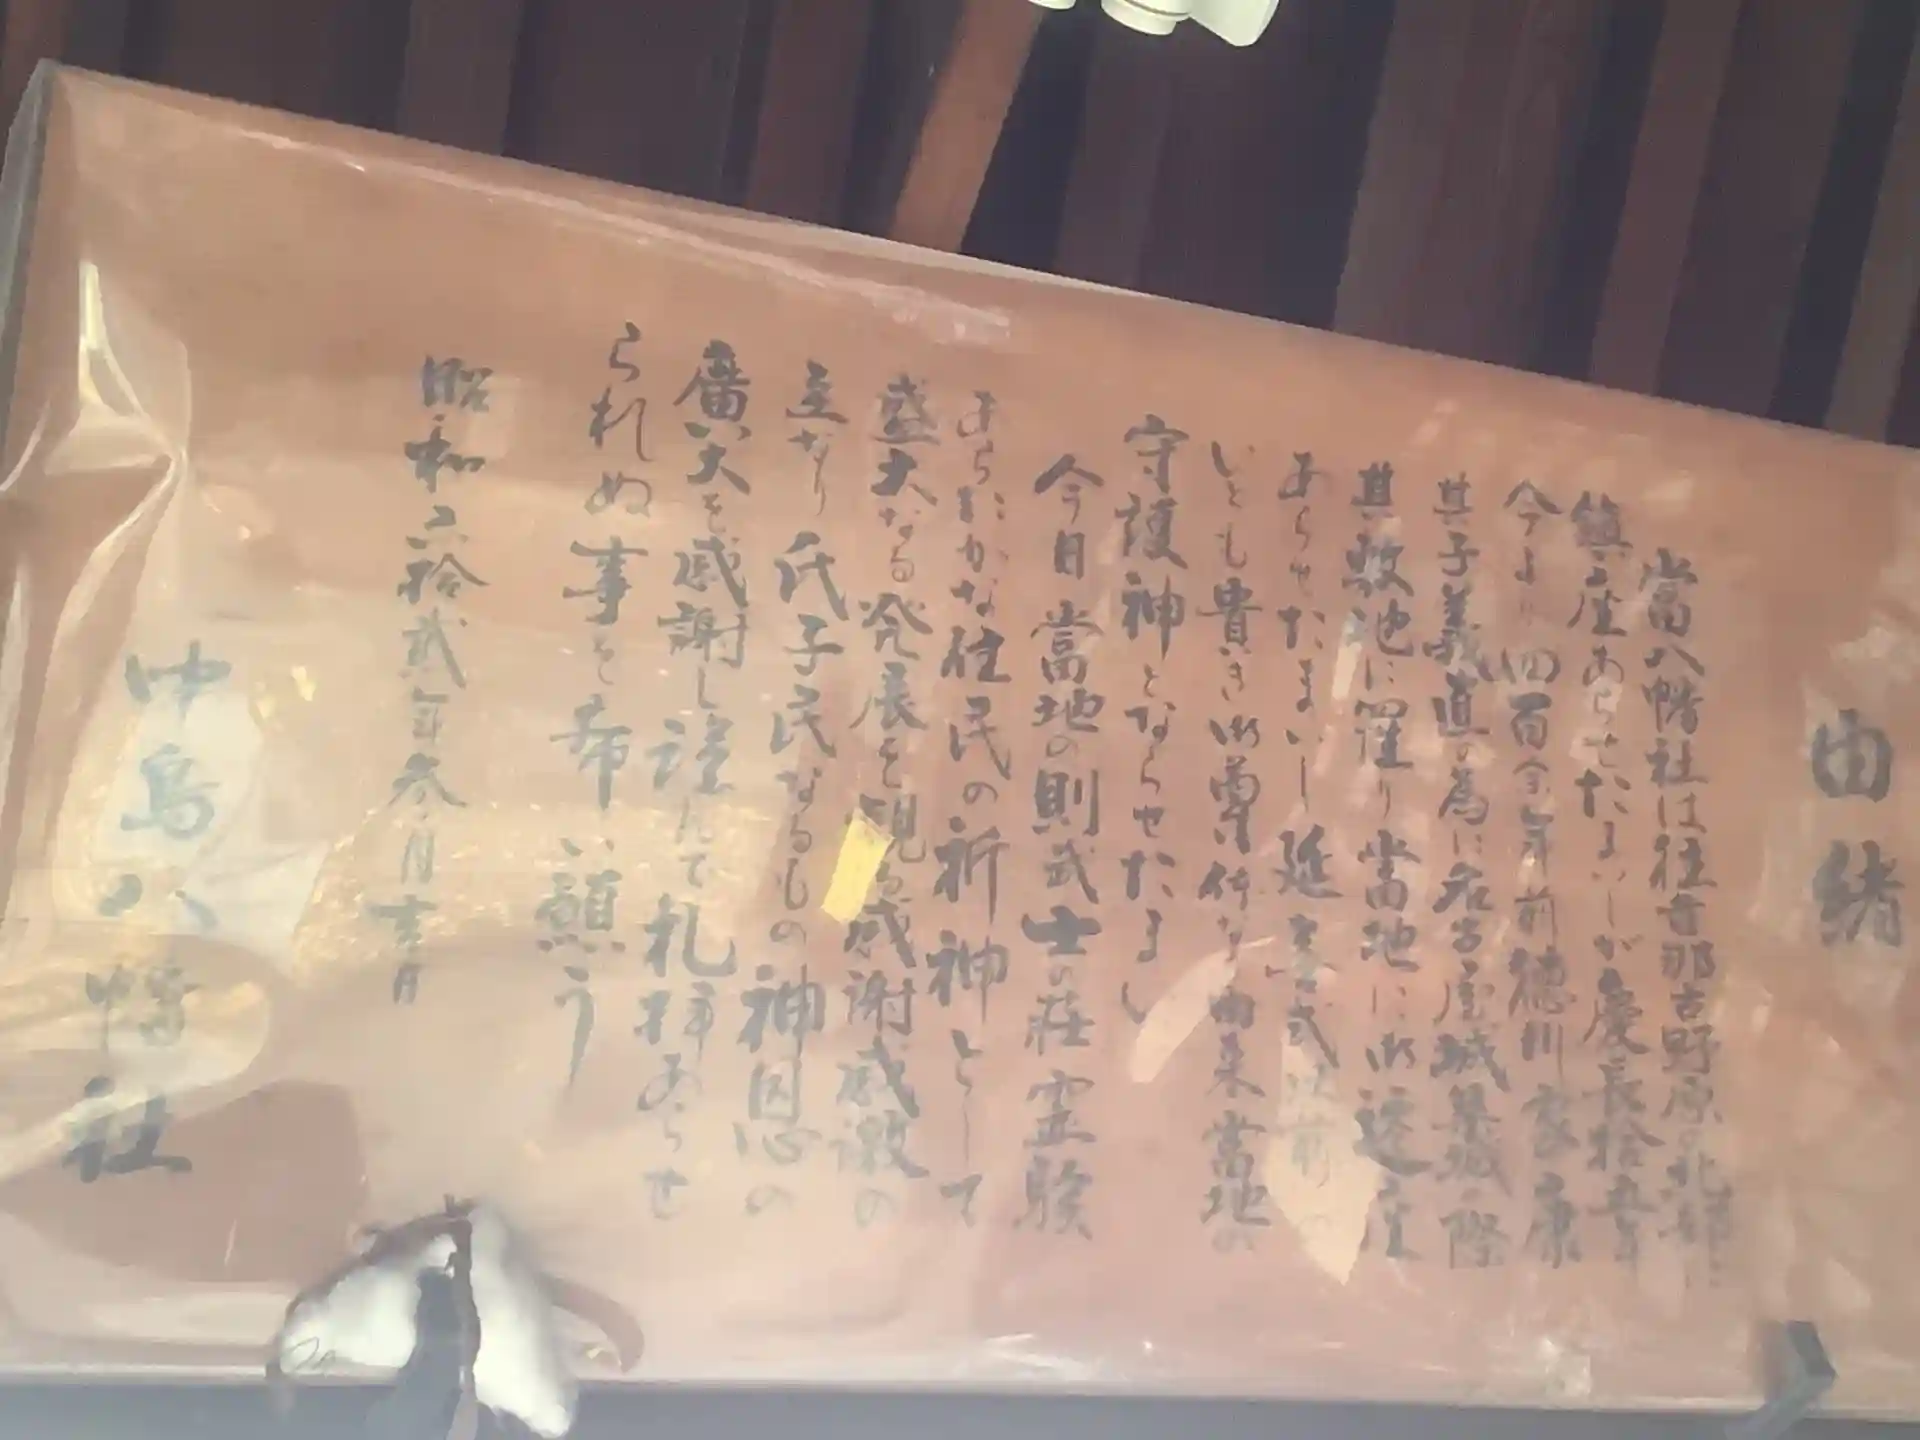 由緒
當八幡社は往昔那古野原の北部に
鎮座あらせたまいしが慶長拾五年
今より四百余年前徳川家康
其子義直の為に名古屋城築城の際
其敷地に罹り當地に御遷座
あらせたまいし延喜式以前の
いとも貴き御尊体な由来當地の
守護神とならせたまい
今日當地の則武士の荘霊験
あらたかな住民の祈神として
盛大なる発展を観る感謝感激の
至なり氏子民なるもの神恩の
廣大を感謝し謹んで礼拝あらせ
られぬ事を希い願う
昭和六拾貳年参月吉日
中島八幡社